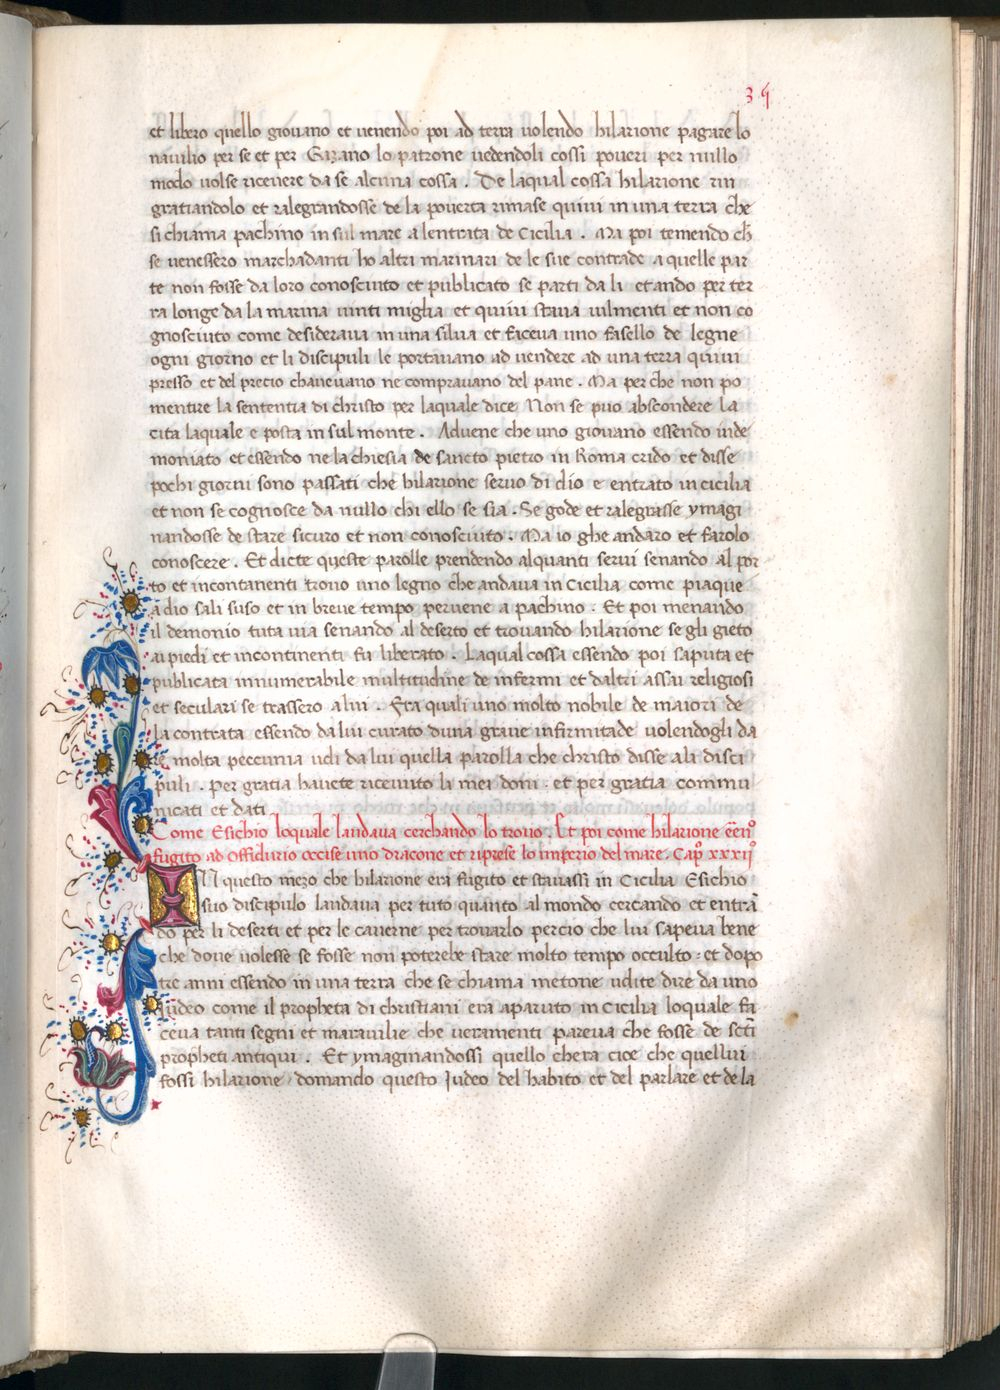 35
et libero quello giovano et venendo poi ad terra volendo hilarione pagare lo
navilio per se et per Gazano lo patrone vedendoli cossi poveri per nullo
modo volse ricevere da se alcuna cossa . De laqual cossa hilarione rin
gratiandolo et ralegrandosse de la poverta rimase quivi in una terra che
si chiama pachino in sul mare a lentrata de Cicilia . Ma poi temendo ch̄
se venessero marchadanti ho altri marinari de le sue contrade a quelle par
te non fosse da loro conosciuto et publicato se parti da li et ando per ter
ra longe da la marina vinti miglia et quivi stava vilmenti et non co
gnosciuto come desiderava in una silva et faceva uno fasello de legne
ogni giorno et li discipuli le portavano ad vendere ad una terra quivi
presso et del precio chavevano ne compravano del pane . Ma per che non po
mentire la sententia di christo per laquale dice Non se puo abscondere la
cita laquale e posta in sul monte . Advene che uno giovano essendo inde
moniato et essendo ne la chiesia de sancto pietro in Roma crido et disse
pochi giorni sono passati che hilarione servo di dio e entrato in cicilia
et non se cognosce da nullo chi ello se sia . Se gode et ralegrasse ymagi
nandosse de stare sicuro et non conosciuto . Ma io ghe andaro et farolo
conoscere . Et dicte queste parolle prendendo alquanti servi senando al por
to et incontanenti trovo uno legno che andava in Cicilia come piaque
a dio sali suso et in breve tempo pervene a pachino . Et poi menando
il demonio tuta via senando al deserto et trovando hilarione se gli gieto
ai piedi et incontinenti fu liberato . Laqual cossa essendo poi saputa et
publicata innumerabile multitudine de infermi et daltri assai religiosi
et seculari se trassero a lui . Fra quali uno molto nobile de maiori de
la contrata essendo da lui curato duna grave infirmitade volendogli da
re molta peccunia udi da lui quella parolla che christo disse a li disci
puli . per gratia havete ricevuto li mei doni : et per gratia commu
nicati et dati
Come Esichio loquale landava cerchando lo trovo . Et poi come hilarione ēēn°
fugito ad Offidurio occise uno dracone et riprese lo imperio del mare . Cap° xxxii°
IN questo mezo che hilarione era fugito et stavassi in Cicilia Esichio
suo discipulo landava per tuto quanto al mondo cercando et entrā
do per li deserti et per le caverne per trovarlo percio che lui sapeva bene
che dove volesse se fosse non poterebe stare molto tempo occulto : et dopo
tre anni essendo in una terra che se chiama metone udite dire da uno
iudeo come il propheta di christiani era aparuto in Cicilia loquale fa
ceva tanti segni et maravilie che veramenti pareva che fosse de sc̄ti
propheti antiqui . Et ymaginandossi quello chera cioe che quellui
fossi hilarione / domando questo Judeo del habito et del parlare et de la